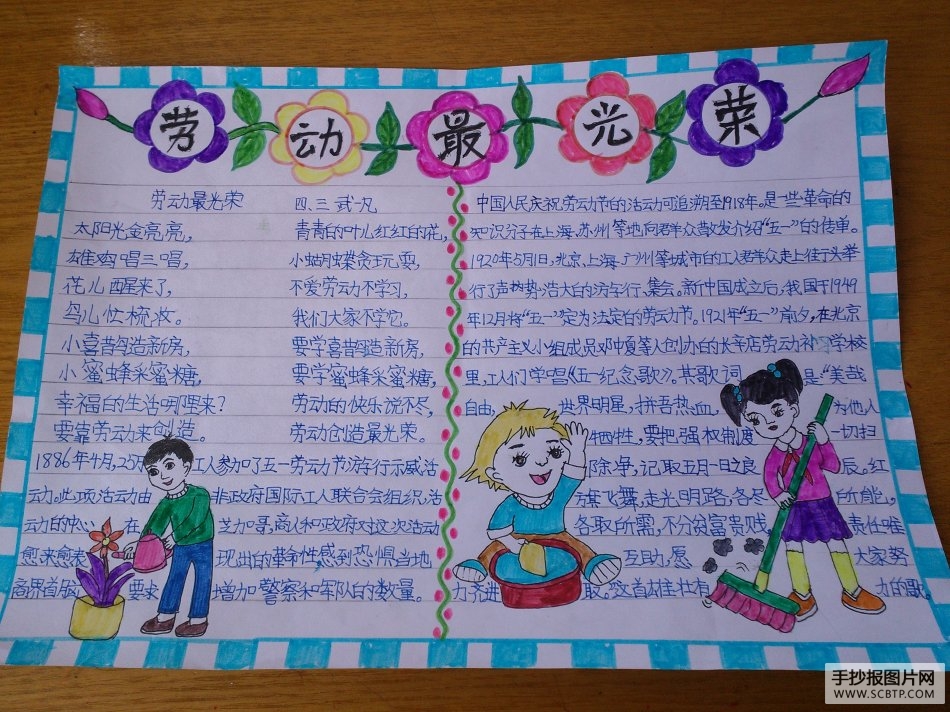 劳动最光荣
劳动最光荣
四、三 武凡
太阳光金亮亮，
雄鸡唱三唱，
花儿醒来了，
鸟儿忙梳妆。
小喜鹊造新房，
小蜜蜂采蜜糖，
幸福的生活哪里来？
要靠劳动来创造。
青青的叶儿红红的花，
小蝴蝶贪玩耍，
不爱劳动不学习，
我们大家不学它。
要学喜鹊造新房，
要学蜜蜂采蜜糖，
劳动的快乐说不尽，
劳动创造最光荣。
1886年4月，25万 工人参加了五一劳动节游行示威活
动。此项活动由 非政府国际工人联合会组织，活
动的中心 在 芝加哥，商人和政府对这次活动
愈来愈表 现出的革命性感到恐惧，当地
商界首脑 要求 增加警察和军队的数量。
中国人民庆祝劳动节的活动可追溯至1918年。是一些革命的
知识分子在上海、苏州等地向群众散发介绍“五一”的传单。
1920年5月1日，北京、上海、广州等城市的工人群众走上街头举
行了声势浩大的游行、集会。新中国成立后，我国于1949
年12月将“五一”定为法定的劳动节。1921年“五一”前夕，在北京
的共产主义小组成员邓中夏等人创办的长辛店劳动补习学校
里，工人们学唱《五一纪念歌》。其歌词 是：“美哉
自由， 世界明星，拼吾热血， 为他人
牺牲，要把强权制度 一切扫
除净，记取五月一日之良 辰。红
旗飞舞，走光明路，各尽 所能，
各取所需，不分贫富贵贱 责任唯
互助，愿 大家努
力齐进 取。”这首雄壮有 力的歌。
手抄报图片网
WWW.SCBTP.COM